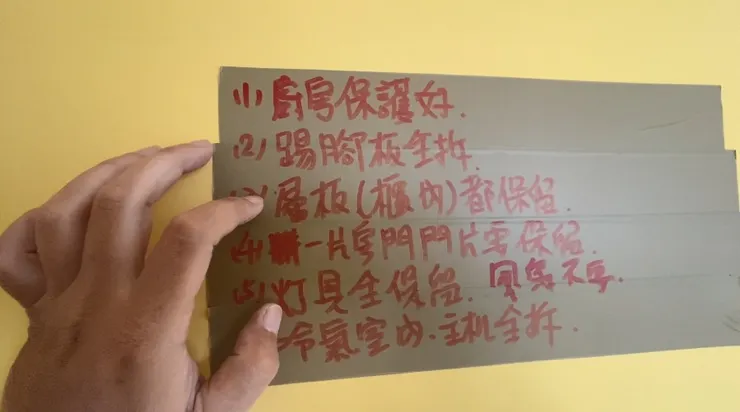 (1) 廚房保護好.
(2) 踢腳板全拆.
(3) 層板(櫃內)都保留.
(4) 一片房門門片需保留.
(5) 灯具全保留. 風扇不要.
冷氣室內.主机全拆.